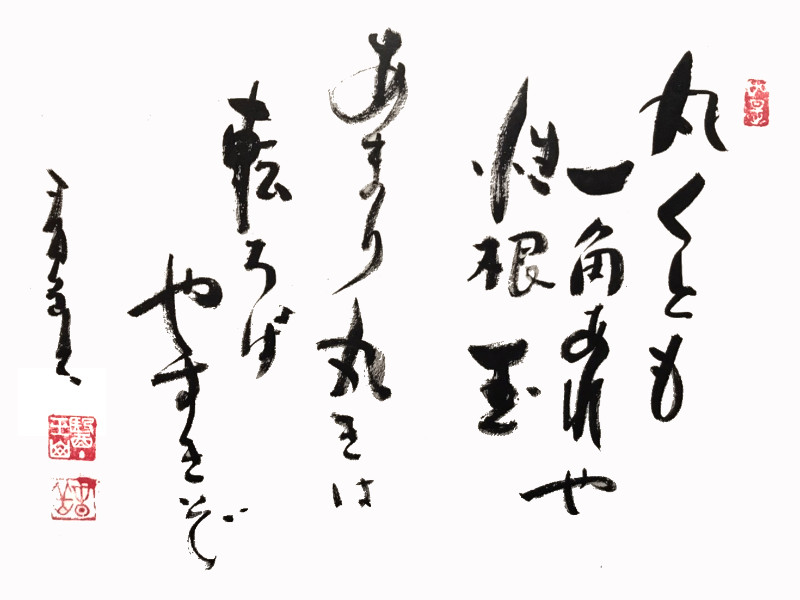 丸くとも
一角あれや
性根玉
あまり丸きは
転ろげ
やすきぞ